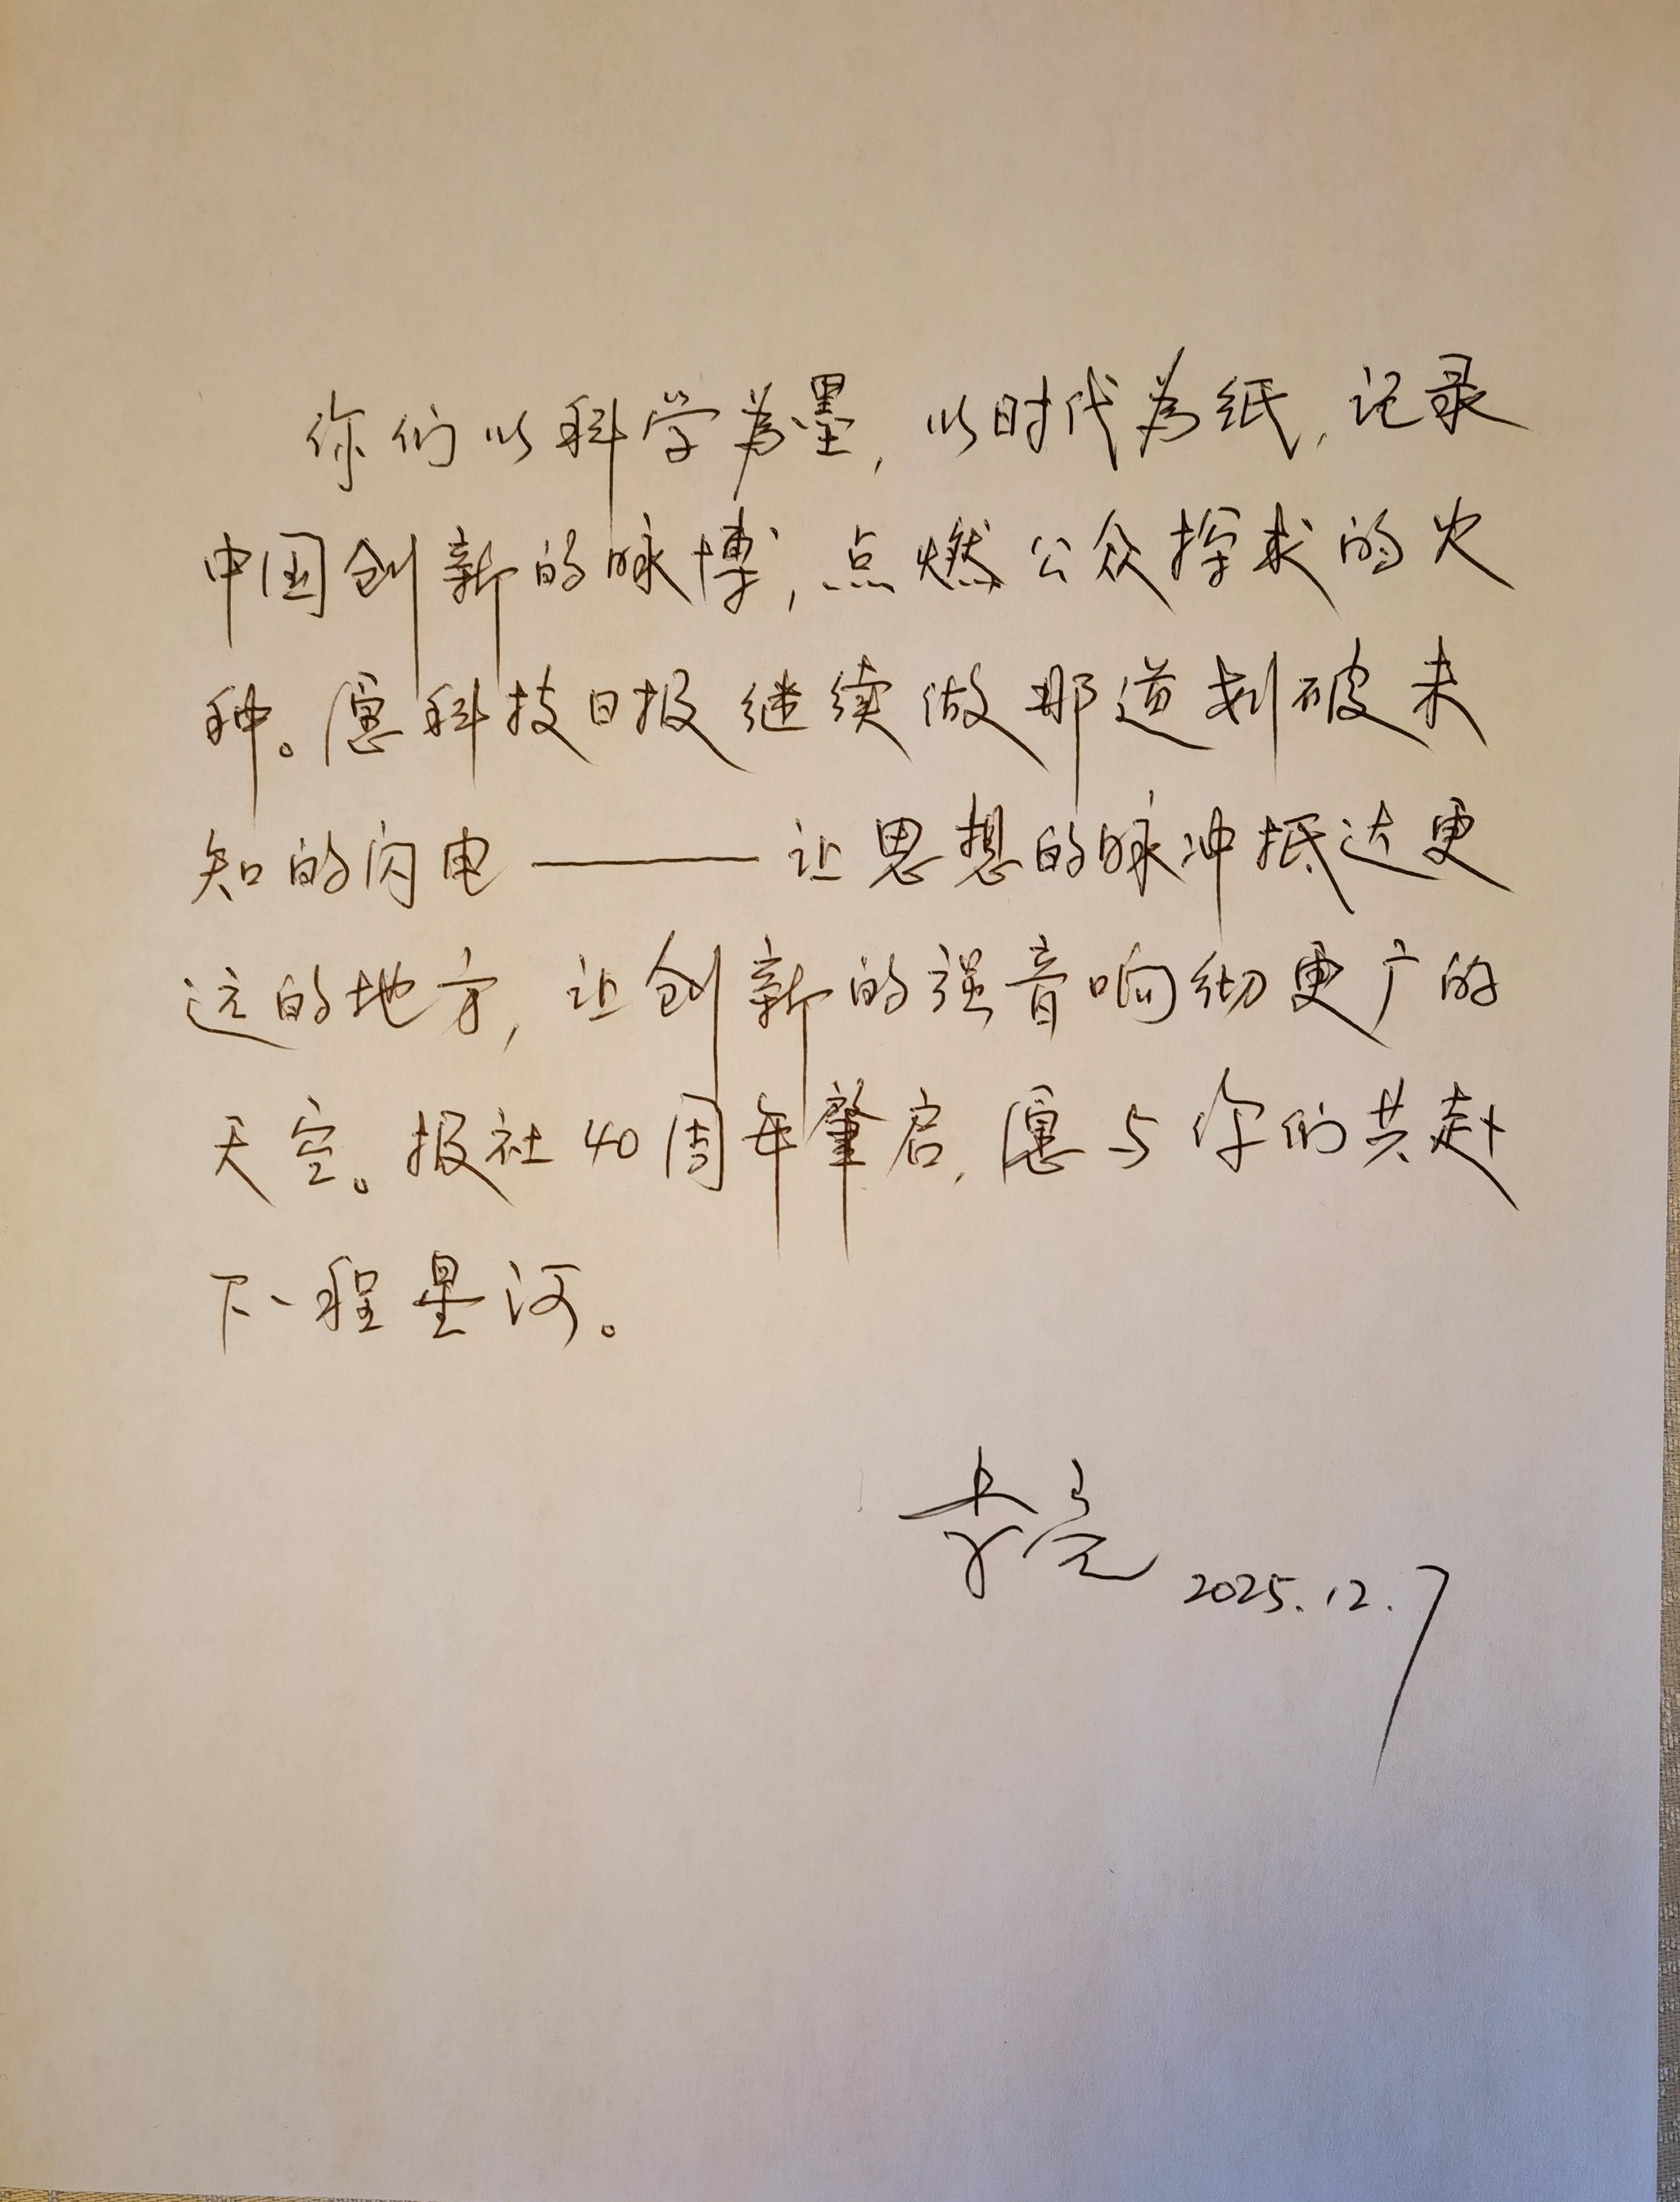 你们以科学為墨，以时代為纸，记录
中国创新的脉博，点燃公众探求的火
种。愿科技日报继续做那道划破未
知的闪电——让思想的脉冲抵达更
远的地方，让创新的强音响彻更广的
天空。报社40周年肇启，愿与你们共赴
下一程星河。
李亮 2025.12.7